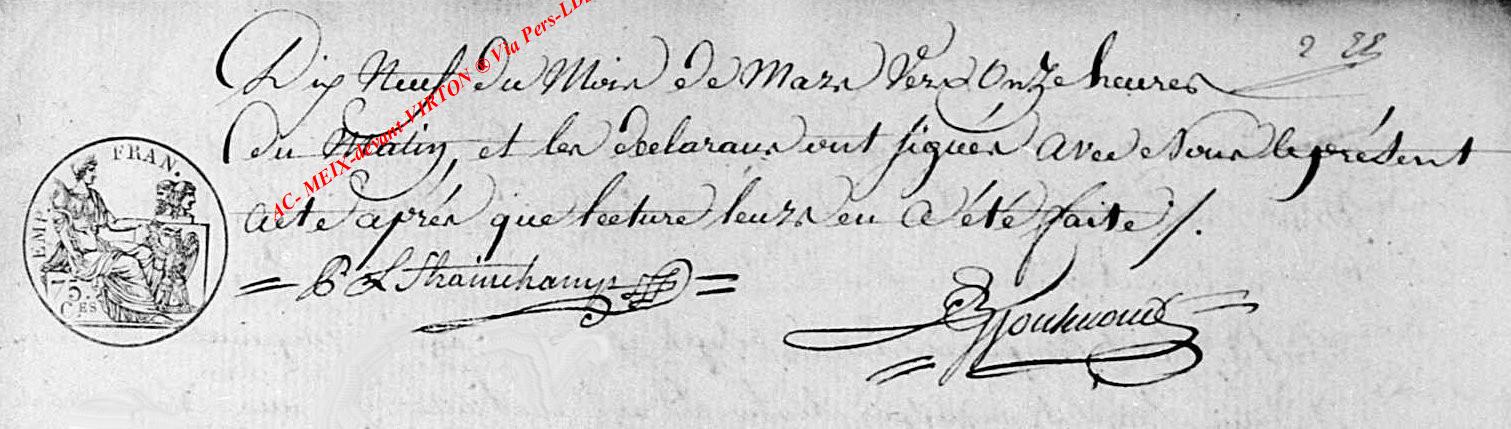 Dix Neuf du Mois de Mars Vers Onze heures
du Matin, et les declarans ont signés avec Nous le présent
acte aprés que lecture leurs en a été faite /.
EMP. FRAN.
75. CES
AC- MEIX-devant VIRTON ® Via Pers-LD